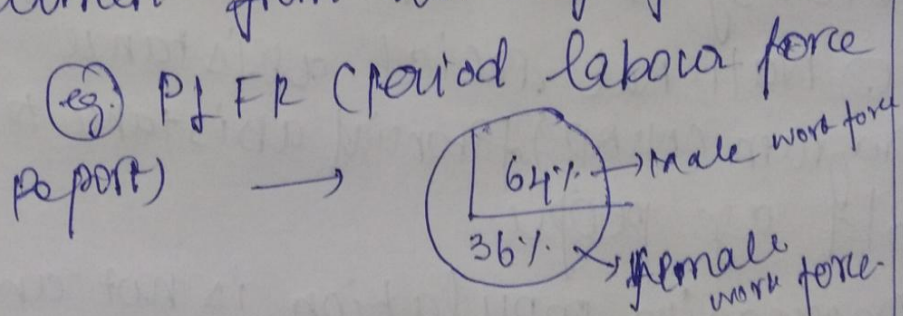 eg. PLFR (Period labour force
Report) →
64% → Male work force
36% → Female
work force.